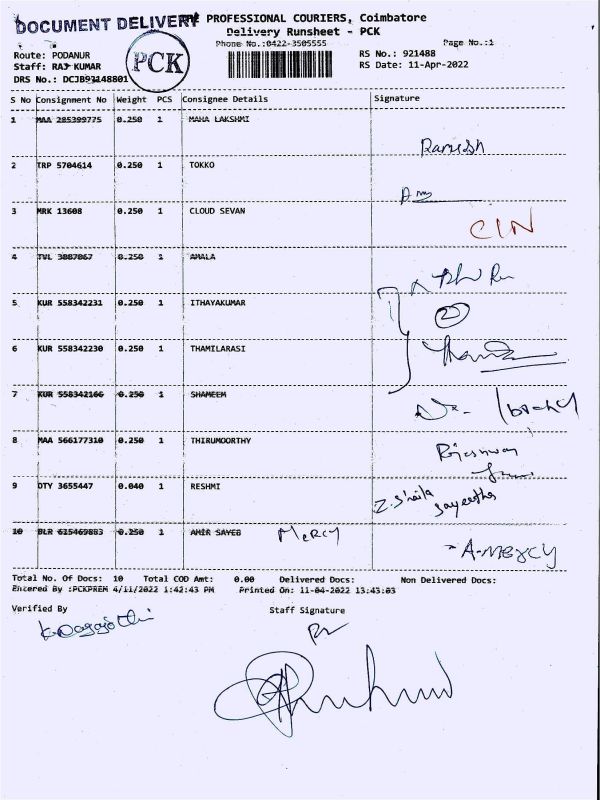 DOCUMENT DELIVERY PROFESSIONAL COURIERS, Coimbatore
Delivery Runsheet - PCK
Phone No.:0422-3505555 Page No.:1
PCK
Route: PODANUR RS No.: 921488
Staff: RAJ KUMAR RS Date: 11-Apr-2022
DRS No.: DCJB92148801
S No Consignment No Weight PCS Consignee Details Signature
1 MAA 285399775 0.250 1 MAHA LAKSHMI
Ramesh
2 TRP 5704614 0.250 1 TOKKO
3 MRK 13608 0.250 1 CLOUD SEVAN
CIN
4 TVL 3887067 0.250 1 AMALA
5 KUR 558342231 0.250 1 ITHAYAKUMAR
6 KUR 558342230 0.250 1 THAMILARASI
7 KUR 558342166 0.250 1 SHAMEEM
8 MAA 566177310 0.250 1 THIRUMOORTHY
9 DTY 3655447 0.040 1 RESHMI
10 BLR 615469883 0.250 1 AMIR SAYEB Mercy
A-Mercy
Total No. Of Docs: 10 Total COD Amt: 0.00 Delivered Docs: Non Delivered Docs:
Entered By :PCKPREM 4/11/2022 1:42:43 PM Printed On: 11-04-2022 13:43:03
Verified By Staff Signature